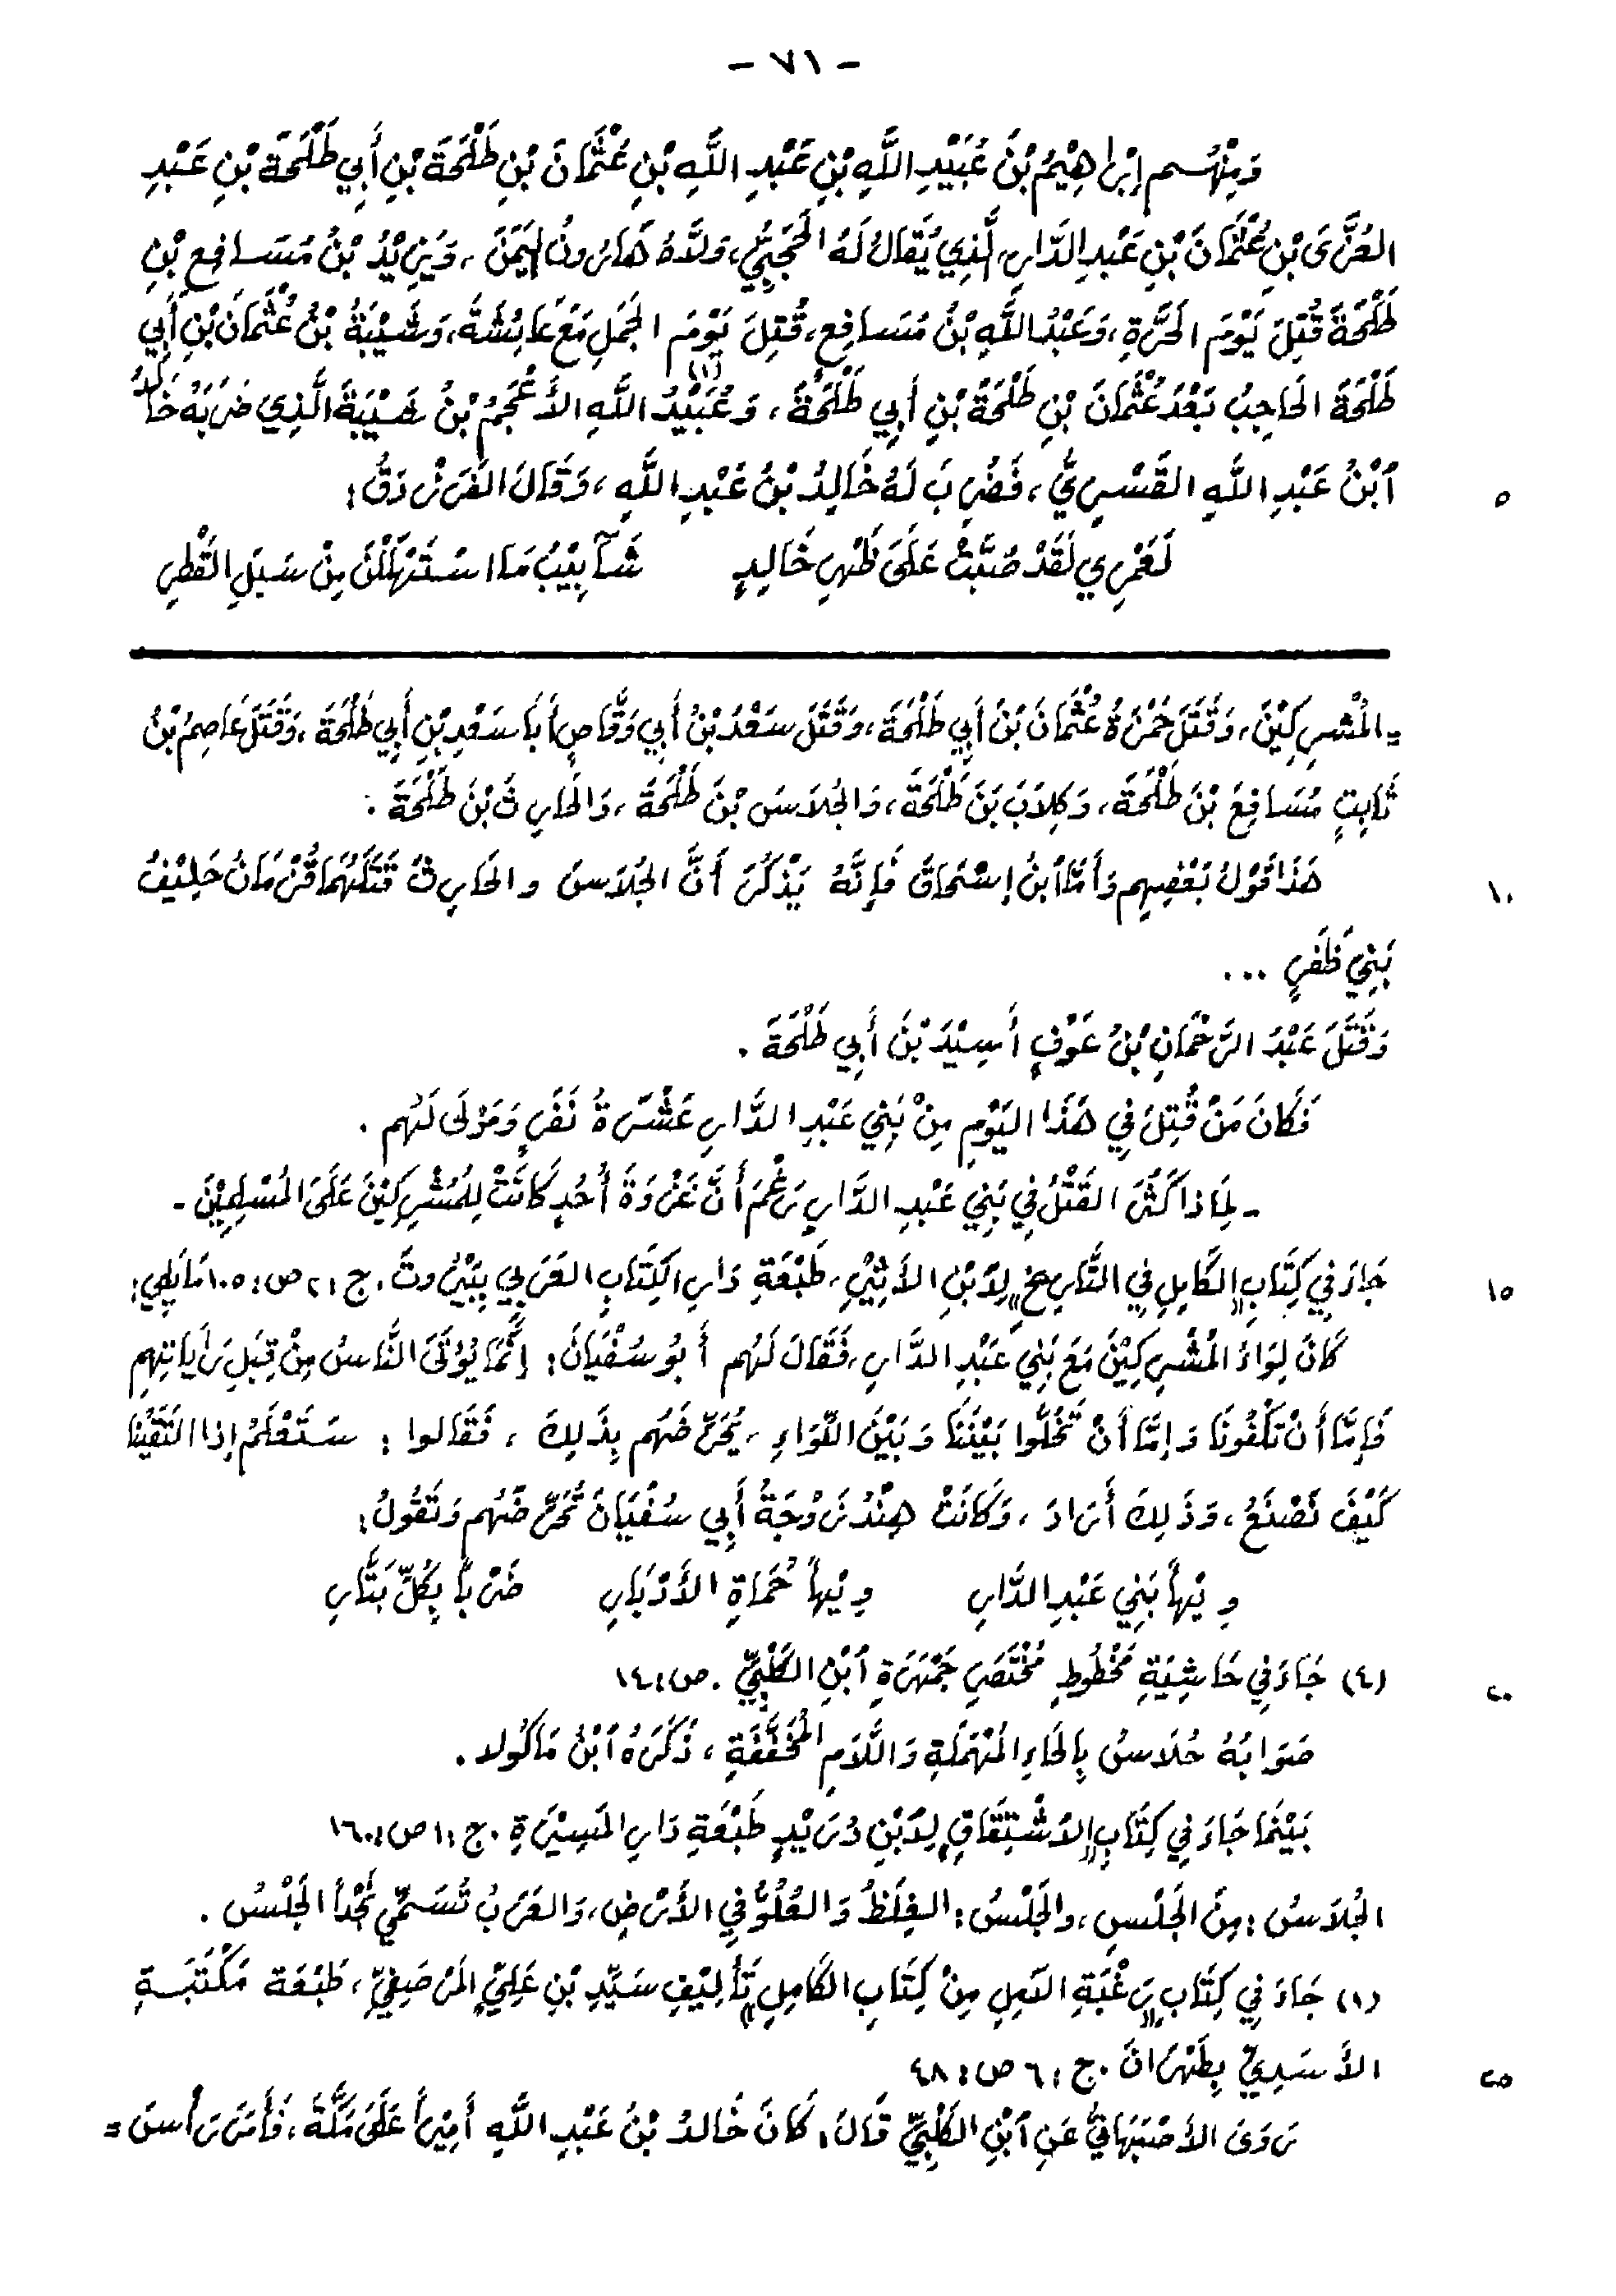 - ٧١ -
وَمِنْهُم إِبْرَاهِيْمُ بْنُ عُبَيْدِ اللَّهِ بْنِ عَبْدِ اللَّهِ بْنِ عُثْمَانَ بْنِ طَلْحَةَ بْنِ أَبِي طَلْحَةَ بْنِ عَبْدِ
العُزَّى بْنِ عُثْمَانَ بْنِ عَبْدِ الدَّارِ، الَّذِي يُقَالُ لَهُ الحَجَبِيُّ، وَلَّاهُ هَارُونُ اليَمَنَ، وَيَزِيْدُ بْنُ مُسَافِعِ بْنِ
طَلْحَةَ قُتِلَ يَوْمَ الحَرَّةِ، وَعَبْدُ اللَّهِ بْنُ مُسَافِعٍ، قُتِلَ يَوْمَ الجَمَلِ مَعَ عَائِشَةَ، وَشَيْبَةُ بْنُ عُثْمَانَ بْنِ أَبِي
طَلْحَةَ الحَاجِبُ بَعْدَ عُثْمَانَ بْنِ طَلْحَةَ بْنِ أَبِي طَلْحَةَ، وَعُبَيْدُ اللَّهِ الأَعْجَمُ بْنُ شَيْبَةَ الَّذِي ضَرَبَهُ خَالِدُ (١)
ٱبْنُ عَبْدِ اللَّهِ القَسْرِيُّ، فَضُرِبَ لَهُ خَالِدُ بْنُ عَبْدِ اللَّهِ، وَقَالَ الفَرَزْدَقُ: ٥
لَعَمْرِي لَقَدْ صُبَّتْ عَلَى ظَهْرِ خَالِدٍ شَآبِيْبُ مَا اسْتَهْلَلْنَ مِنْ سَبَلِ القَطْرِ
= المُشْرِكِيْنَ، وَقَتَلَ حَمْزَةُ عُثْمَانَ بْنَ أَبِي طَلْحَةَ، وَقَتَلَ سَعْدُ بْنُ أَبِي وَقَّاصٍ أَبَا سَعْدِ بْنِ أَبِي طَلْحَةَ، وَقَتَلَ عَاصِمُ بْنُ
ثَابِتٍ مُسَافِعَ بْنَ طَلْحَةَ، وَكِلاَبَ بْنَ طَلْحَةَ، وَالجُلاَسَ بْنَ طَلْحَةَ، وَالحَارِثَ بْنَ طَلْحَةَ .
هَذَا قَوْلُ بَعْضِهِم وَأَمَّا ٱبْنُ إِسْحَاقَ فَإِنَّهُ يَذْكُرُ أَنَّ الجُلاَسَ والحَارِثَ قَتَلَهُمَا قُزْمَانُ حَلِيْفُ ١٠
بَنِي ظَفَرٍ ...
وَقَتَلَ عَبْدُ الرَّحْمَانِ بْنُ عَوْفٍ أَسِيْدَ بْنَ أَبِي طَلْحَةَ .
فَكَانَ مَنْ قُتِلَ فِي هَذَا اليَوْمِ مِنْ بَنِي عَبْدِ الدَّارِ عَشَرَةُ نَفَرٍ وَمَوْلَى لَهُم .
- لِمَاذَا كَثُرَ القَتْلُ فِي بَنِي عَبْدِ الدَّارِ رَغْمَ أَنَّ غَزْوَةَ أُحُدٍ كَانَتْ لِلمُشْرِكِيْنَ عَلَى المُسْلِمِيْنَ -
جَاءَ فِي كِتَابِ "الكَامِلِ فِي التَّارِيخِ" لِٱبْنِ الأَثِيْرِ، طَبْعَةِ دَارِ الكِتَابِ العَرَبِي بِبَيْرُوتَ . ج: ٢ ص: ١٠٥ مَا يَلِي: ١٥
كَانَ لِوَاءُ المُشْرِكِيْنَ مَعَ بَنِي عَبْدِ الدَّارِ، فَقَالَ لَهُم أَبُو سُفْيَانَ: إِنَّمَا يُؤْتَى النَّاسُ مِنْ قِبَلِ رَايَاتِهِمِ
فَإِمَّا أَنْ تَكْفُونَا وَإِمَّا أَنْ تُخَلُّوا بَيْنَنَا وَبَيْنَ اللِّوَاءِ، يُحَرِّضُهُم بِذَلِكَ، فَقَالوا: سَتَعْلَمُ إِذَا التَقَيْنَا
كَيْفَ نَصْنَعُ، وَذَلِكَ أَرَادَ، وَكَانَتْ هِنْدُ زَوْجَةُ أَبِي سُفْيَانَ تُحَرِّضُهُم وَتَقُولُ:
وِيْهاً بَنِي عَبْدِ الدَّارِ وِيْهاً حُمَاةِ الأَدْبَارِ ضَرْباً بِكُلِّ بَتَّارِ
(٤) جَاءَ فِي حَاشِيَةِ مَخْطُوطِ مُخْتَصَرِ جَمْهَرَةِ ٱبْنِ الكَلْبِيِّ . ص: ١٤ ٢٠
صَوَابُهُ حُلاَسُ بِالحَاءِ المُهْمَلَةِ وَاللَّامِ المُخَفَّفَةِ، ذَكَرَهُ ٱبْنُ مَاكُولا .
بَيْنَمَا جَاءَ فِي كِتَابِ "الاشْتِقَاقِ" لِٱبْنِ دُرَيْدٍ طَبْعَةِ دَارِ المَسِيْرَةِ . ج: ١ ص: ١٦٠
الجُلاَسُ: مِنَ الجَلْسِ، والجَلْسُ: الغِلَظُ وَالعُلُوُّ فِي الأَرْضِ، وَالعَرَبُ تُسَمِّي نَجْداً الجَلْسُ .
(١) جَاءَ فِي كِتَابِ "رَغْبَةِ الآمِلِ مِنْ كِتَابِ الكَامِلِ" تَأْلِيْفِ سَيِّدِ بْنِ عَلِيٍّ المَرْصَفِيِّ، طَبْعَة مَكْتَبَةِ
الأَسَدِيِّ بِطَهْرَانَ . ج: ٦ ص: ٤٨ ٢٥
رَوَى الأَصْبَهَانِيُّ عَنِ ٱبْنِ الكَلْبِيِّ قَالَ: كَانَ خَالدُ بْنُ عَبْدِ اللَّهِ أَمِيْراً عَلَى مَكَّةَ، فَأَمَرَ رَأْسَ =